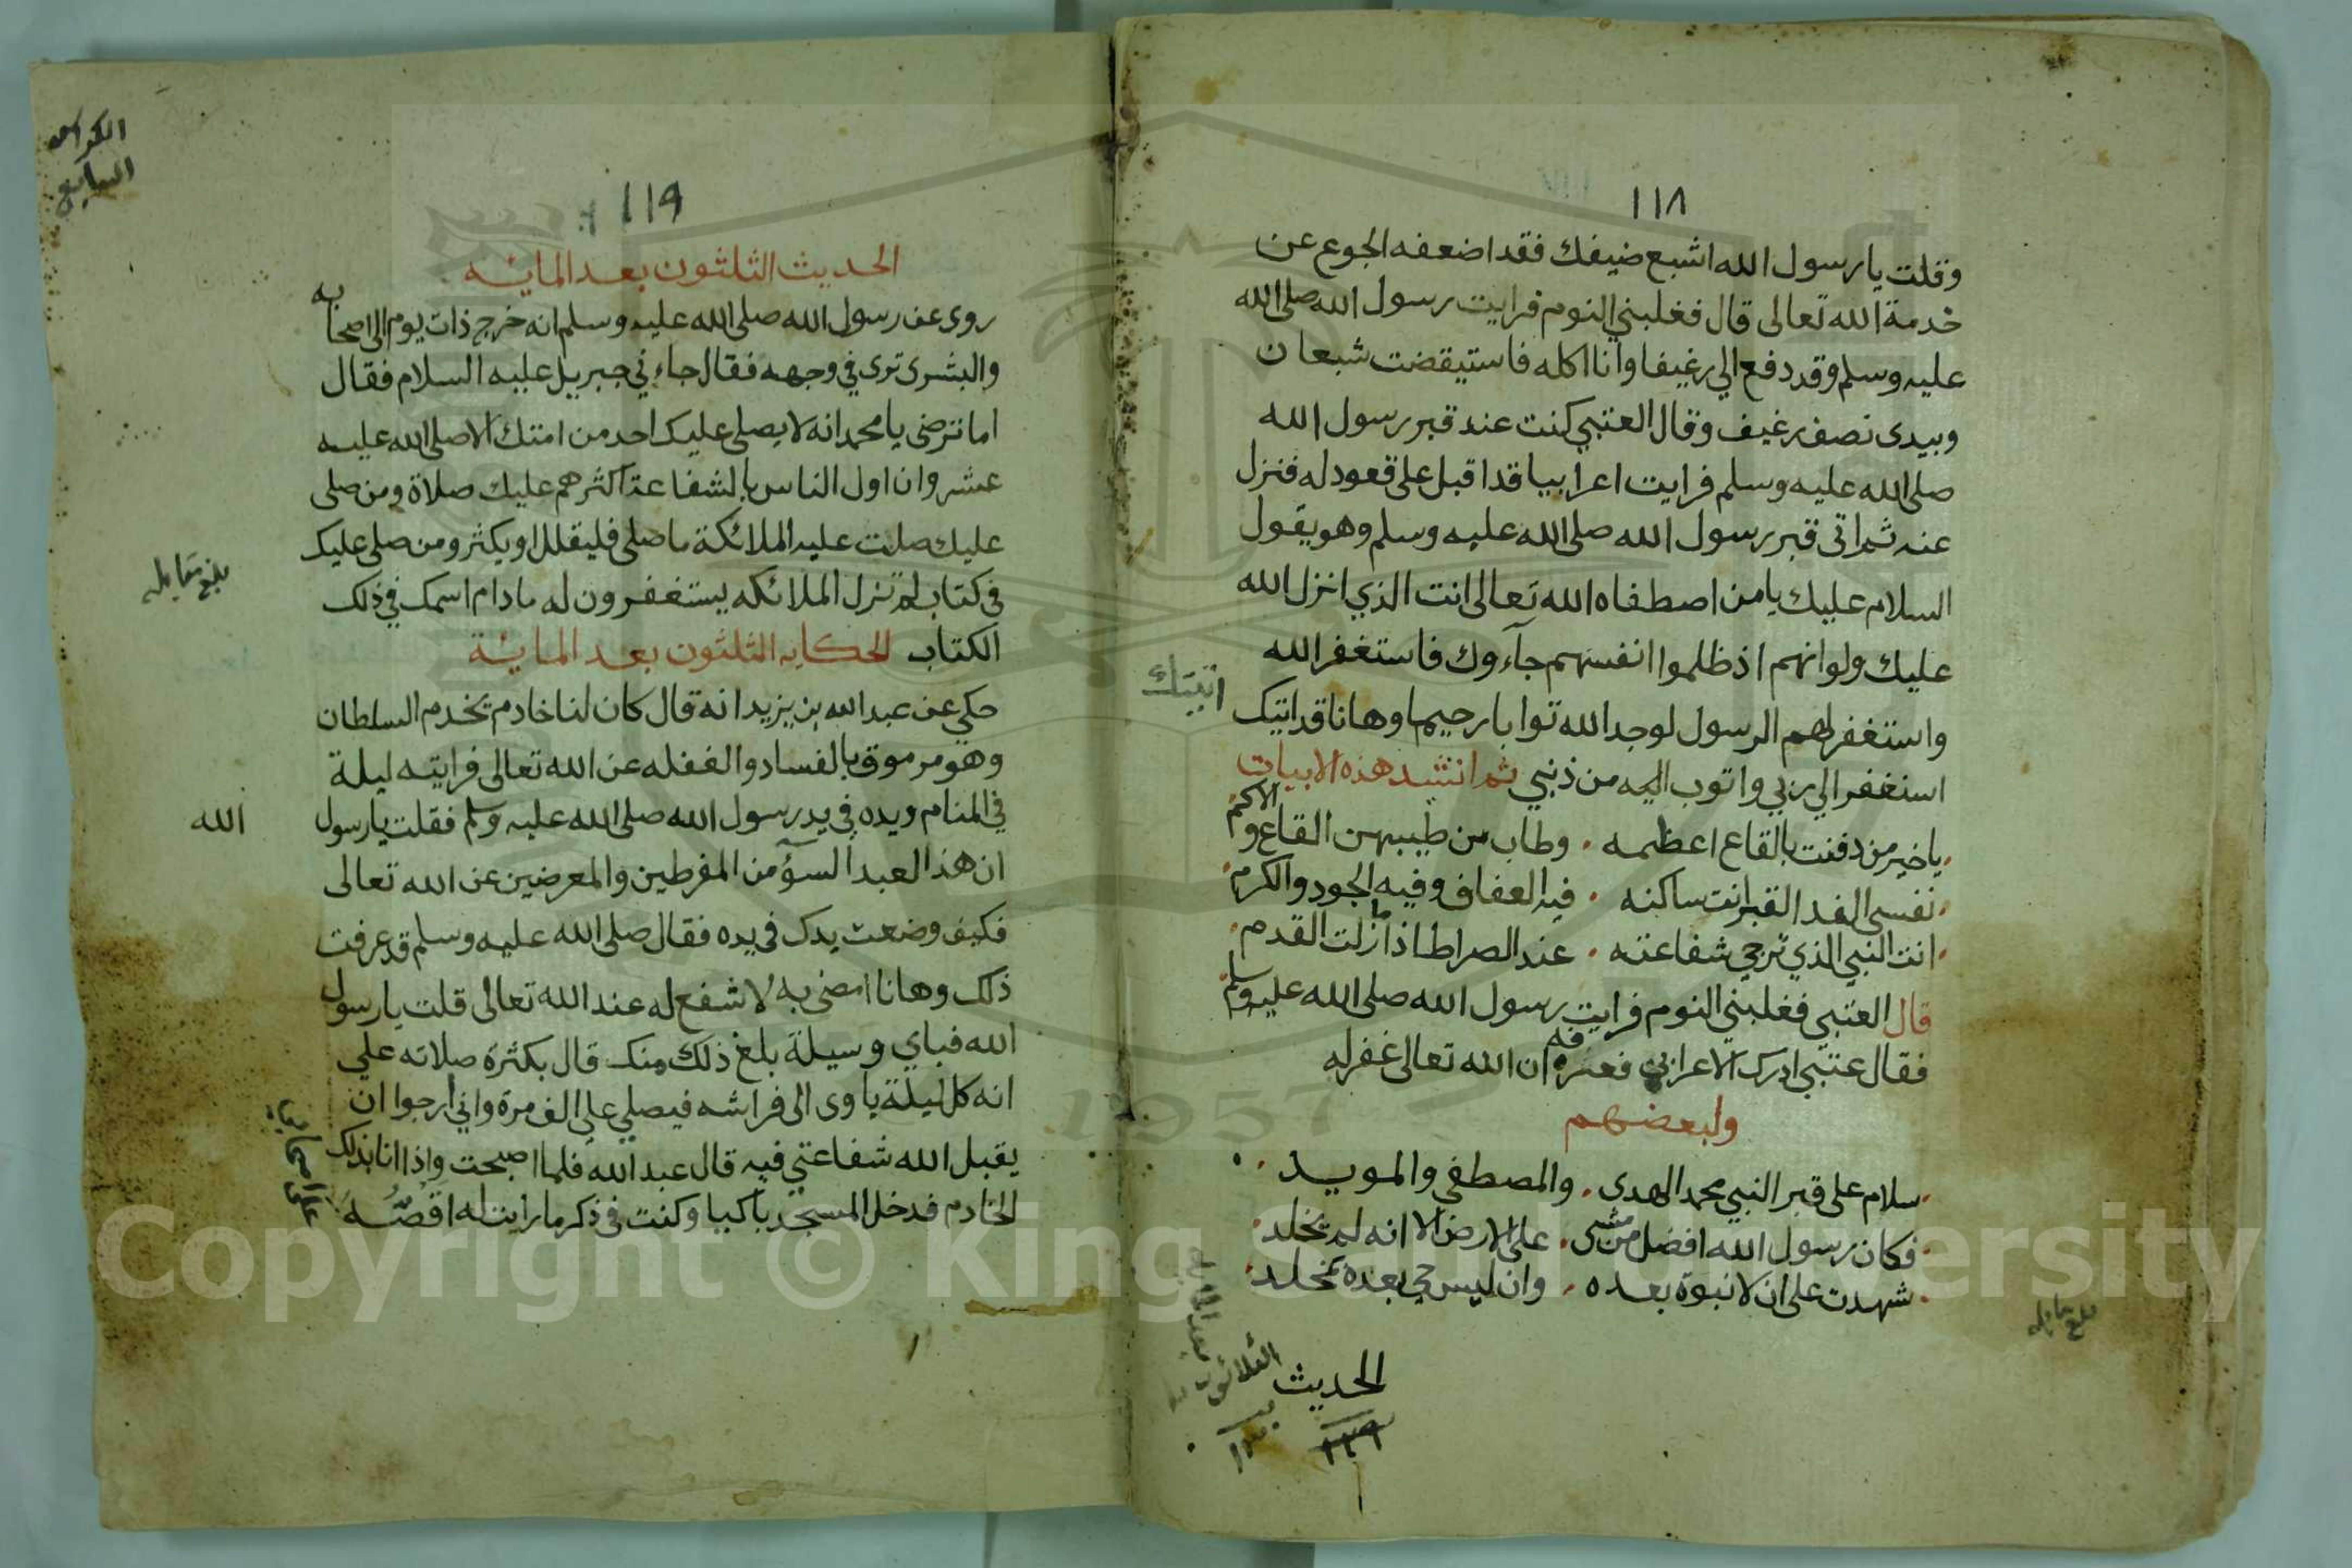 ١١٨
وقلت يا رسول الله اشبع ضيفك فقد اضعفه الجوع عن
خدمة الله تعالى قال فغلبني النوم فرايت رسول الله صلى الله
عليه وسلم وقد دفع الي رغيفا وانا اكله فاستيقضت شبعان
وبيدى نصف رغيف وقال العتبي كنت عند قبر رسول الله
صلى الله عليه وسلم فرايت اعرابيا قد اقبل على قعود له فنزل
عنه ثم اتى قبر رسول الله صلى الله عليه وسلم وهو يقول
السلام عليك يا من اصطفاه الله تعالى انت الذي انزل الله
عليك ولو انهم اذ ظلموا انفسهم جآءوك فاستغفر الله
واستغفر لهم الرسول لوجد الله توابا رحيما وها نا قد اتيتك
اتيتك
استغفر الي ربي واتوب اليه من ذنبي ثم انشد هذه الابيات
يا خير من دفنت بالقاع اعظمه . وطاب من طيبهن القاع والاكم
نفسي الفدا لقبر انت ساكنه . فيه العفاف وفيه الجود والكرم
انت النبي الذي ترجى شفاعته . عند الصراط اذا ما زلت القدم
قال العتبي فغلبني النوم فرايت رسول الله صلى الله عليه وسلم
فقال عتبي ادرك الاعرابي فعرفه ان الله تعالى غفر له
ولبعضهم
سلام على قبر النبي محمد الهدى . والمصطفى والمويد
فكان رسول الله افضل من مشى . على الارض الا انه لم يخلد
شهدت على ان لا نبوة بعده . وان ليس حي بعده يخلد
بلغ مقابله
الحديث
الثلاثون بعد المايه
١١٩
الكراس
السابع
الحديث الثلثون بعد المائه
روى عن رسول الله صلى الله عليه وسلم انه خرج ذات يوم الى اصحابه
والبشرى ترى في وجهه فقال جاءني جبريل عليه السلام فقال
اما ترضى يا محمد انه لا يصلى عليك احد من امتك الا صلى الله عليه
عشر وان اول الناس بالشفاعة اكثرهم عليك صلاة ومن صلى
عليك صلت عليه الملائكة ما صلى فليقلل او يكثر ومن صلى عليك
في كتاب لم تزل الملائكه يستغفرون له ما دام اسمك في ذلك
بلغ مقابله
الكتاب الحكايه الثلثون بعد المائة
حكي عن عبد الله بن يزيد انه قال كان لنا خادم يخدم السلطان
وهو مرموق بالفساد والغفله عن الله تعالى فرايته ليلة
في المنام ويده في يد رسول الله صلى الله عليه وسلم فقلت يا رسول
الله
ان هذا العبد السؤ من المفرطين والمعرضين عن الله تعالى
فكيف وضعت يدك في يده فقال صلى الله عليه وسلم قد عرفت
ذلك وها نا امضى به لاشفع له عند الله تعالى قلت يا رسول
الله فباي وسيلة بلغ ذلك منك قال بكثرة صلاته علي
انه كل ليلة ياوى الى فراشه فيصلي علي الف مرة واني ارجوا ان
يقبل الله شفاعتي فيه قال عبد الله فلما اصبحت واذا انا بذلك
الخادم قد دخل المسجد باكيا وكنت في ذكر ما رايت له اقصه
على اصحابي
Copyright © King Saud University
1957